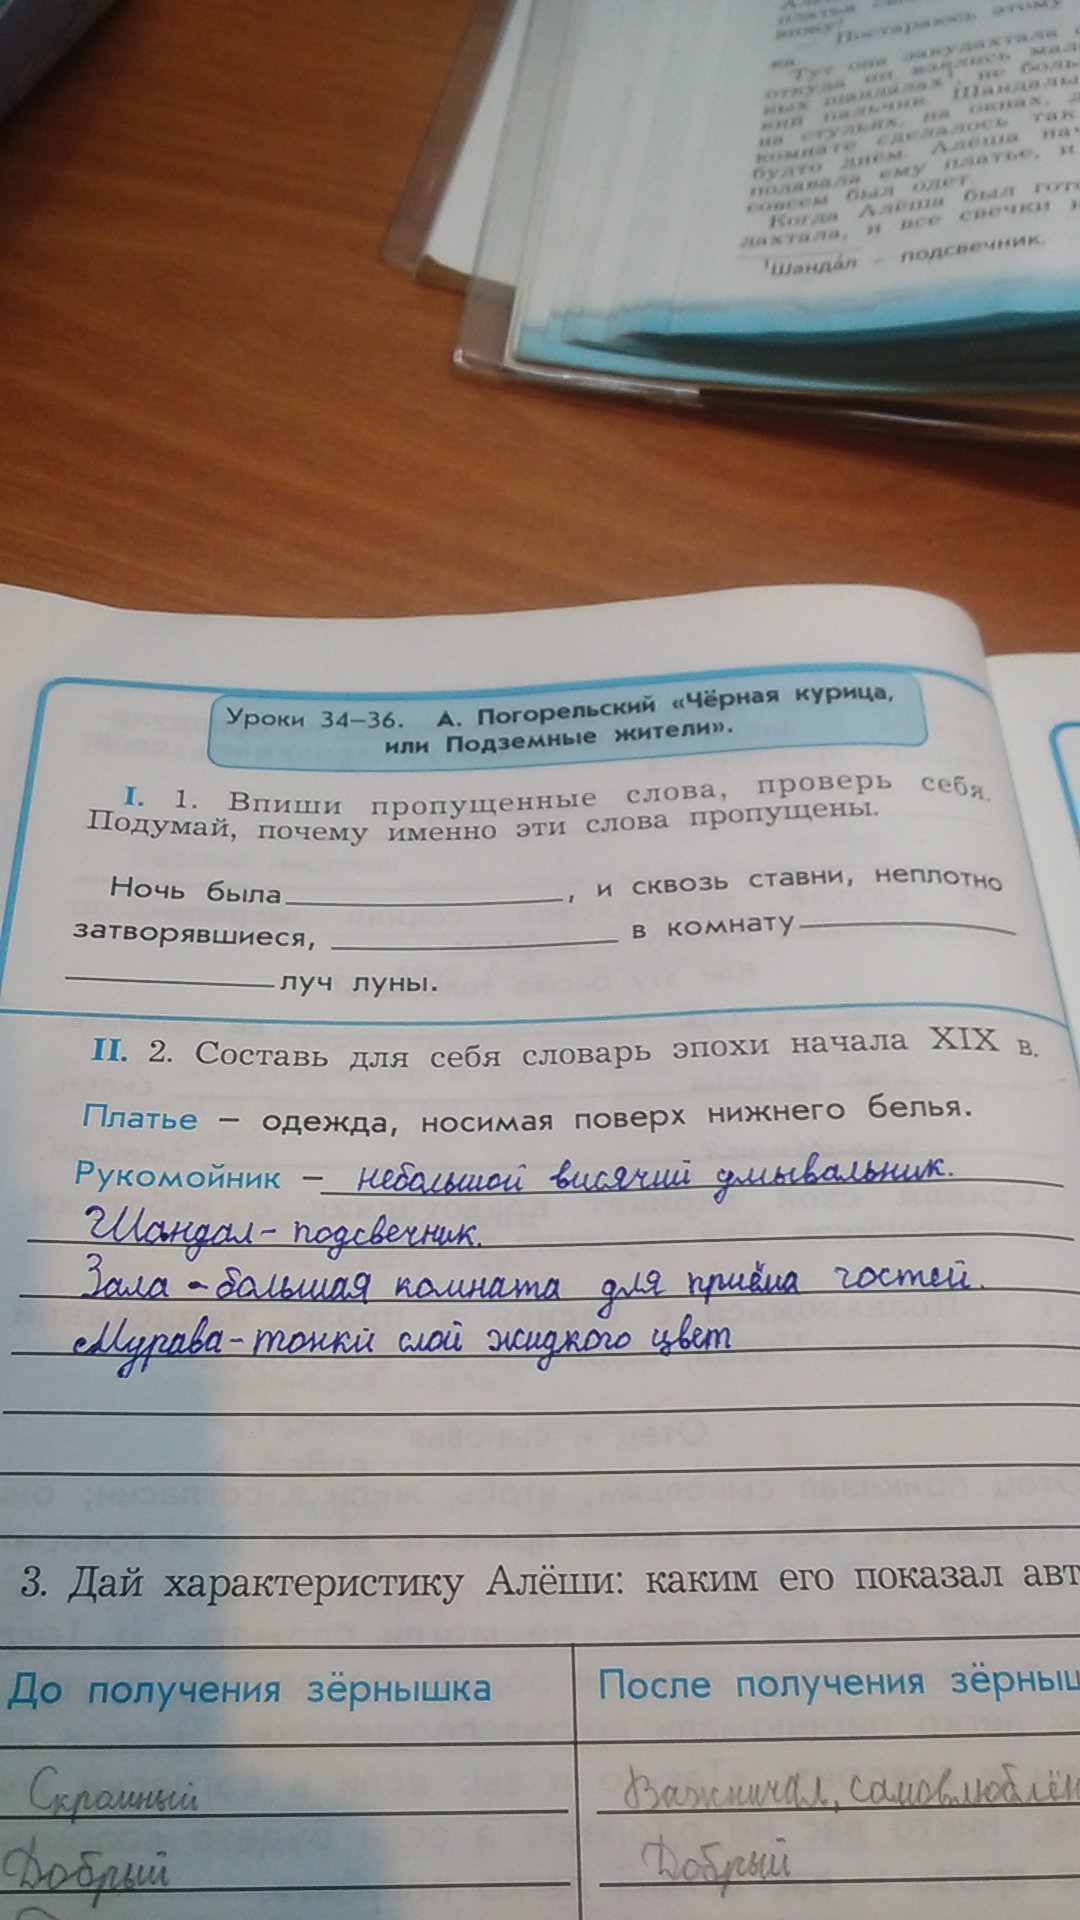 платья
вижу!
— Постараюсь этому
ка.
Тут она закудахтала
откуда ни взялись мал
ных шандалах¹, не боль
кий пальчик. Шандалы
на стульях, на окнах,
комнате сделалось так
будто днём. Алёша нач
подавала ему платье, и
совсем был одет.
Когда Алёша был гото
дахтала, и все свечки и
¹Шандáл – подсвечник.
Уроки 34–36. А. Погорельский «Чёрная курица,
или Подземные жители».
I. 1. Впиши пропущенные слова, проверь себя.
Подумай, почему именно эти слова пропущены.
Ночь была, и сквозь ставни, неплотно
затворявшиеся, в комнату
луч луны.
II. 2. Составь для себя словарь эпохи начала XIX в.
Платье – одежда, носимая поверх нижнего белья.
Рукомойник – небольшой висячий умывальник.
Шандал – подсвечник.
Зала – большая комната для приёма гостей.
Мурава – тонки слой жидкого цвет
3. Дай характеристику Алёши: каким его показал авт
До получения зёрнышка После получения зёрныш
Скромный Важничал, самовлюблён
Добрый Добрый